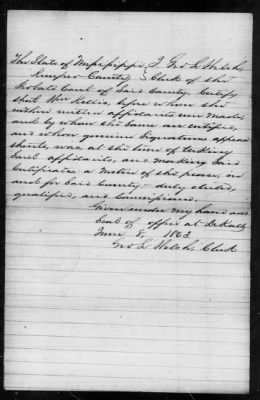 The State of Mississippi } I Geo L Welsh,
Kemper County } Clerk of the
Probate Court of Said County, Certify
that Wm Kellis, before whom the
within written affidavits were made,
and by whom the same are certified,
and whose genuine Signature appears
thereto, was at the time of taking
Said affidavits, and making Said
Certificate a Justice of the peace, in
and for Said County, duly elected,
qualified, and Commissioned.
Given under my hand and
Seal of office at DeKalb
June 8, 1863
Geo L Welsh, Clerk